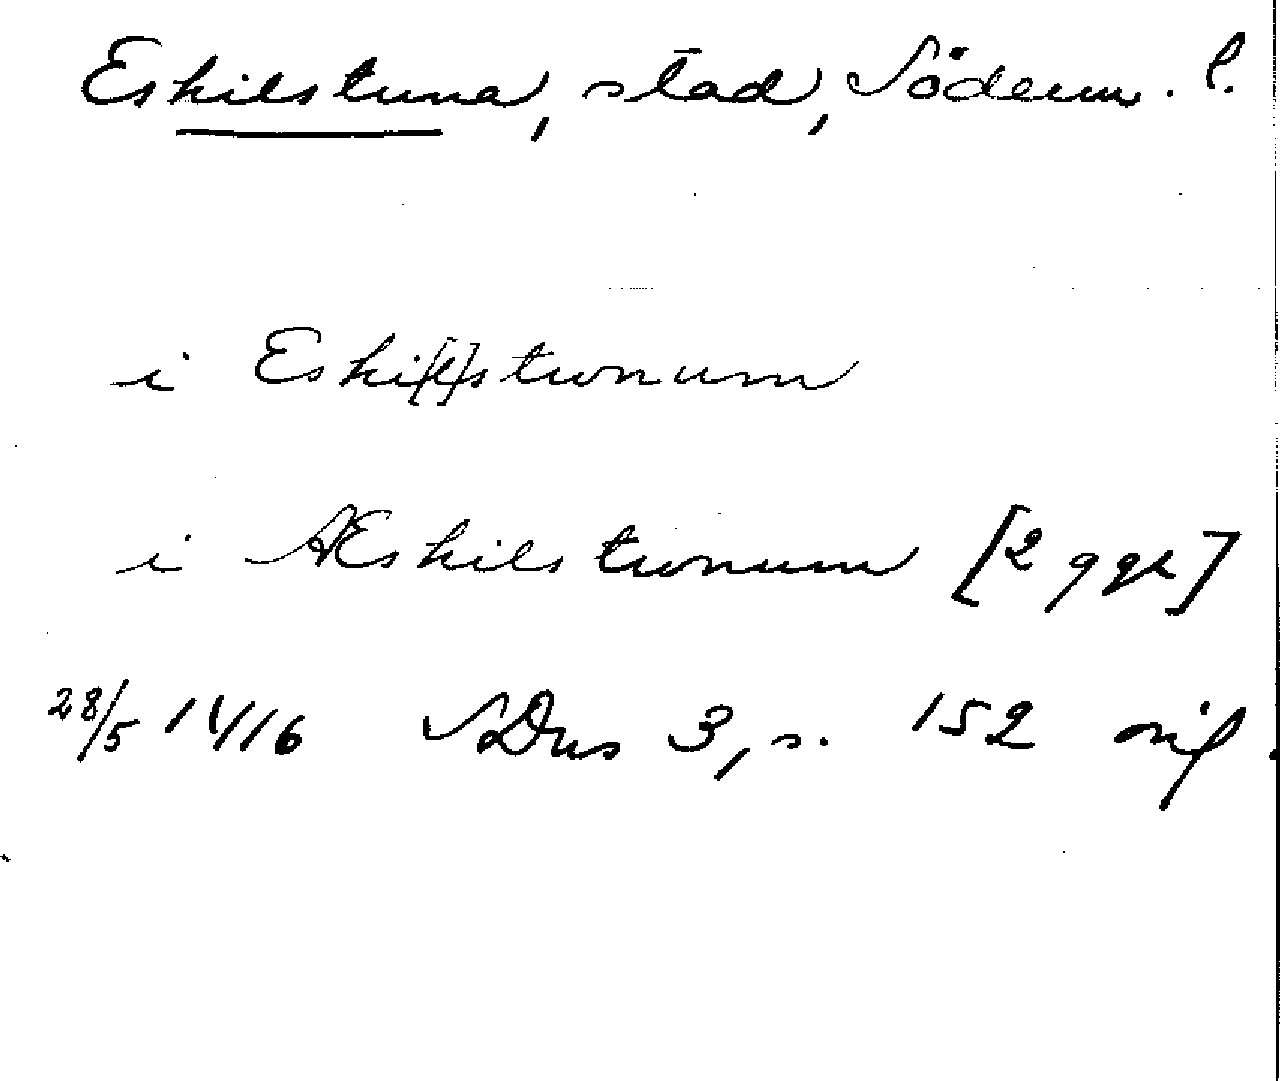 Eskilstuna, stad, Söderm. l.
i Eski[l]stwnum
i Æskilstwnum [2 ggr]
28/5 1416 SDns 3, s. 152 orig.